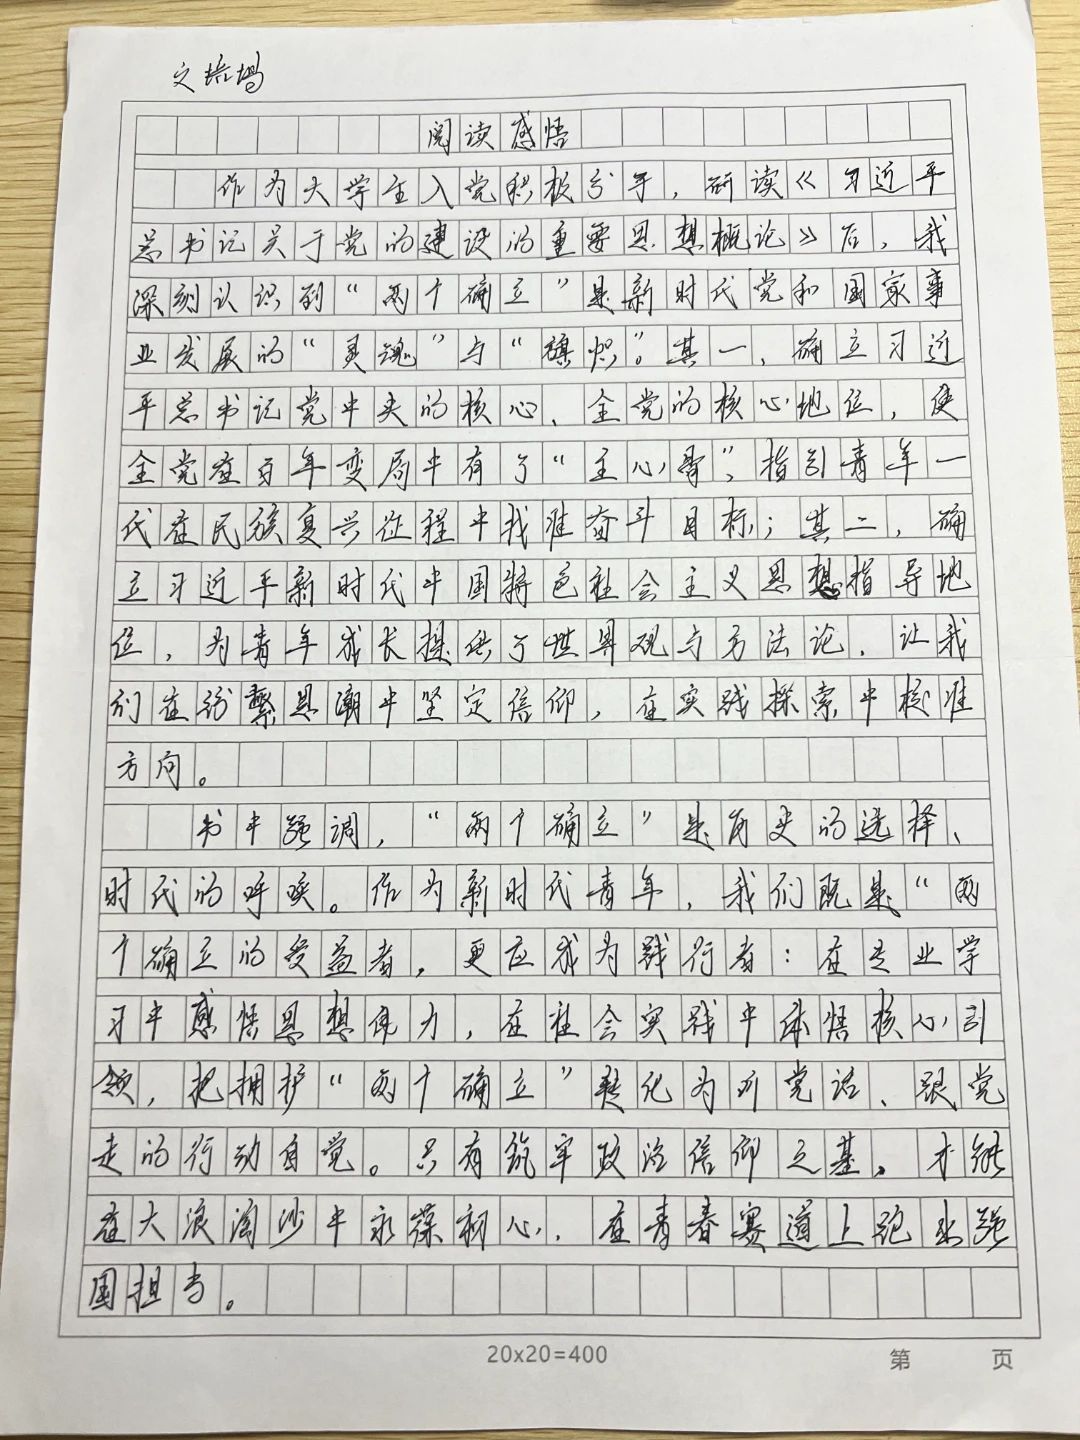 文培
阅读感悟
作为大学生入党积极分子，研读《习近平
总书记关于党的建设的重要思想概论》后，我
深刻认识到“两个确立”是新时代党和国家事
业发展的“灵魂”与“旗帜”。其一，确立习近
平总书记党中央的核心、全党的核心地位，使
全党在百年变局中有了“主心骨”，指引青年一
代在民族复兴征程中找准奋斗目标；其二，确
立习近平新时代中国特色社会主义思想指导地
位，为青年成长提供了世界观与方法论，让我
们在纷繁思潮中坚定信仰，在实践探索中校准
方向。
书中强调，“两个确立”是历史的选择、
时代的呼唤。作为新时代青年，我们既是“两
个确立的受益者，更应成为践行者：在专业学
习中感悟思想伟力，在社会实践中体悟核心引
领，把拥护“两个确立”转化为听党话、跟党
走的行动自觉。只有筑牢政治信仰之基，才能
在大浪淘沙中永葆初心，在青春赛道上跑出强
国担当。
20x20=400
第 页